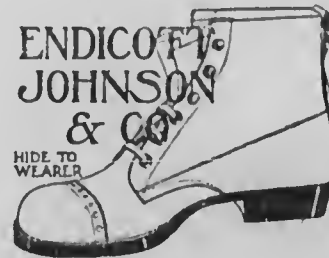 ENDICOTT-
JOHNSON
& CO.
HIDE TO
WEARER